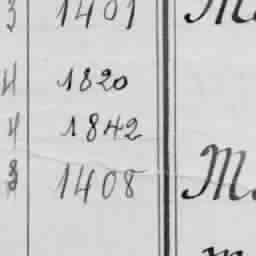 3 1401 M
4 1820
4 1842
3 1408 M.